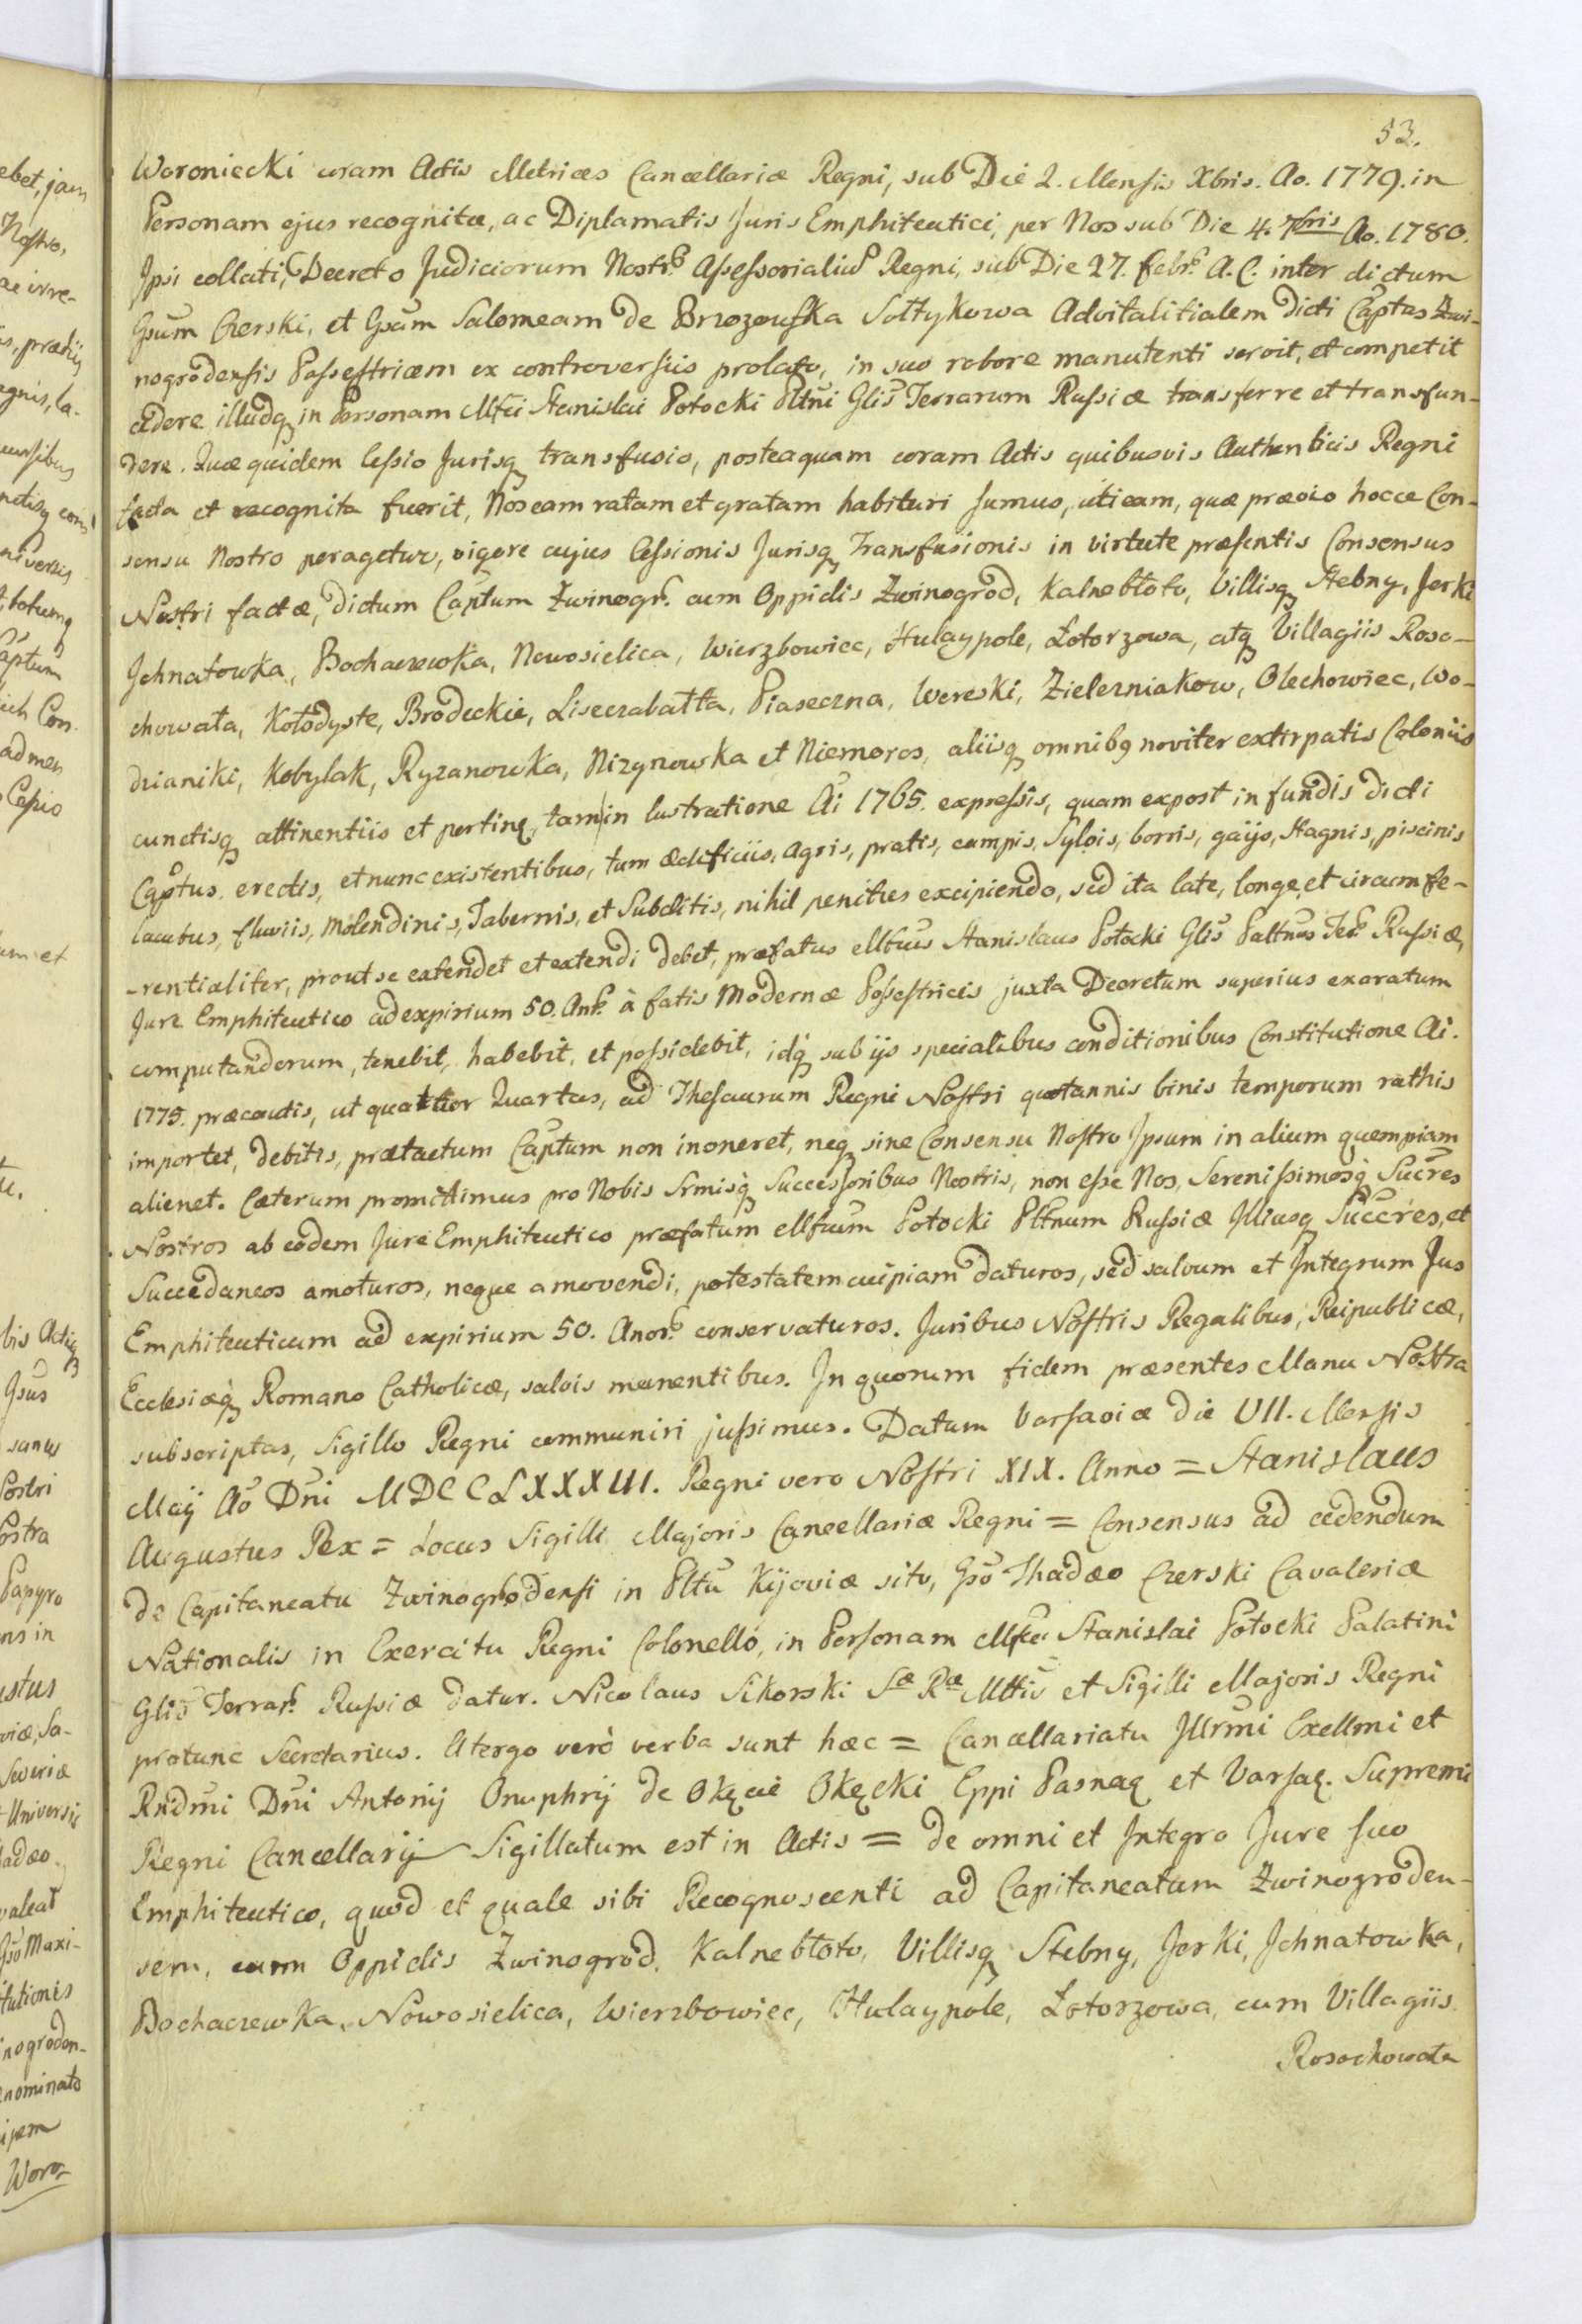 53.
Woroniecki coram Actis Metrices Cancellariæ Regni, sub Die 2. Mensis Xbris. Ao. 1779. in
Personam ejus recognitæ, ac Diplamatis Juris Emphiteutici, per Nos sub Die 4. 7bris Ao. 1780.
Ipsi collati, Decreto Judiciorum Nostr. Assessorialiu Regni, sub Die 27. febr. A. C. inter dictum
Gsum Czerski, et Gsam Salomeam de Brzozowska Sołtykowa Advitalitialem dicti Captus Zwi-
nogrodensis Possestricem ex controversiis prolato, in suo robore manutenti servit, et competit
cedere illudq in Personam Mfci Stanislai Potocki Pltni Glis Terrarum Russiæ transferre et transfun-
dere. Quæ quidem Cessio Jurisq transfusio, posteaquam coram Actis quibusvis Authenticis Regni
facta et recognita fuerit, Nos eam ratam et gratam habituri sumus, uti eam, quæ prævio hocce Con-
sensu Nostro peragetur, vigore cujus Cessionis Jurisq Transfusionis in virtute præsentis Consensus
Nostri factæ, dictum Captum Zwinogr. cum Oppidis Zwinogrod, Kalnebłoto, Villisq Stebny, Jerki
Jchnatowka, Bochaczewka, Nowosielica, Wierzbowiec, Hulaypole, Łotorzowa, atq Villagiis Roso-
chowata, Kołodyste, Brodeckie, Liseczabałta, Piaseczna, Wereski, Zielezniakow, Olechowiec, Wo-
dzianiki, Kobylak, Ryzanowka, Nizynowka et Niemoros, aliisq omnibq noviter extirpatis Coloniis
cunctisq attinentiis et pertinę, tam in lustratione Ai 1765. expressis, quam expost in fundis dicti
Captus erectis, et nunc existentibus, tum ædificiis, agris, pratis, campis, Sylvis, borris, gaijs, Stagnis, piscinis
lacubus, fluviis, Molendinis, Tabernis, et Subditis, nihil penitus excipiendo, sed ita late, longe, et circumfe-
-rentialiter, prout se extendet et extendi debet, præfatus Mfcus Stanislaus Potocki Glis Paltnus Ter. Russiæ,
Jure Emphiteutico ad expirium 50. An. à fatis Modernæ Possestricis juxta Decretum superius exaratum
computandorum, tenebit, habebit, et possidebit, idq sub ijs specialibus conditionibus Constitutione Ai.
1775. præcautis, ut quattuor Quartas, ad Thesaurum Regni Nostri quotannis binis temporum rathis
importet, debitis, prætactum Captum non inoneret, neq sine Consensu Nostro Ipsum in alium quempiam
alienet. Cæterum promittimus pro Nobis Srmisq Successoribus Nostris, non esse Nos, Serenissimosq Sucres
Nostros ab eodem Jure Emphiteutico præfatum Mfcum Potocki Pltnum Russiæ Illiusq Succres, et
Succedaneos amoturos, neque amovendi, potestatem cuipiam daturos, sed salvum et Integrum Jus
Emphiteuticum ad expirium 50. Anor. conservaturos. Juribus Nostris Regalibus, Reipublicæ,
Ecclesiæq Romano Catholicæ, salvis manentibus. In quorum fidem præsentes Manu Nostra
subscriptas, Sigillo Regni communiri jussimus. Datum Varsaviæ die VII. Mensis
Maij Ao Dni MDCCLXXXIII. Regni vero Nostri XIX. Anno = Stanislaus
Augustus Rex = Locus Sigilli Majoris Cancellariæ Regni = Consensus ad cedendum
de Capitaneatu Zwinogrodensi in Pltu Kijoviæ sito, Gso Thadæo Czerski Cavaleriæ
Nationalis in Exercitu Regni Colonello, in Personam Mfci Stanislai Potocki Palatini
Glis Terrar. Russiæ datur. Nicolaus Sikorski Sæ Ræ Mttis et Sigilli Majoris Regni
protunc Secretarius. A tergo verò verba sunt hæc = Cancellariatu Jllrmi Exellmi et
Rndmi Dni Antonij Onuphrij de Okęcie Okęcki Eppi Pasnaę et Varsaę. Supremi
Regni Cancellarij Sigillatum est in Actis = de omni et Integro Jure suo
Emphiteutico, quod et quale sibi Recognoscenti ad Capitaneatum Zwinogroden-
sem, cum Oppidis Zwinogrod, Kalnebłoto, Villisq Stebny, Jerki, Jchnatowka,
Bochaczewka, Nowosielica, Wierzbowiec, Hulaypole, Łotorzowa, cum Villagiis
Rosochowata